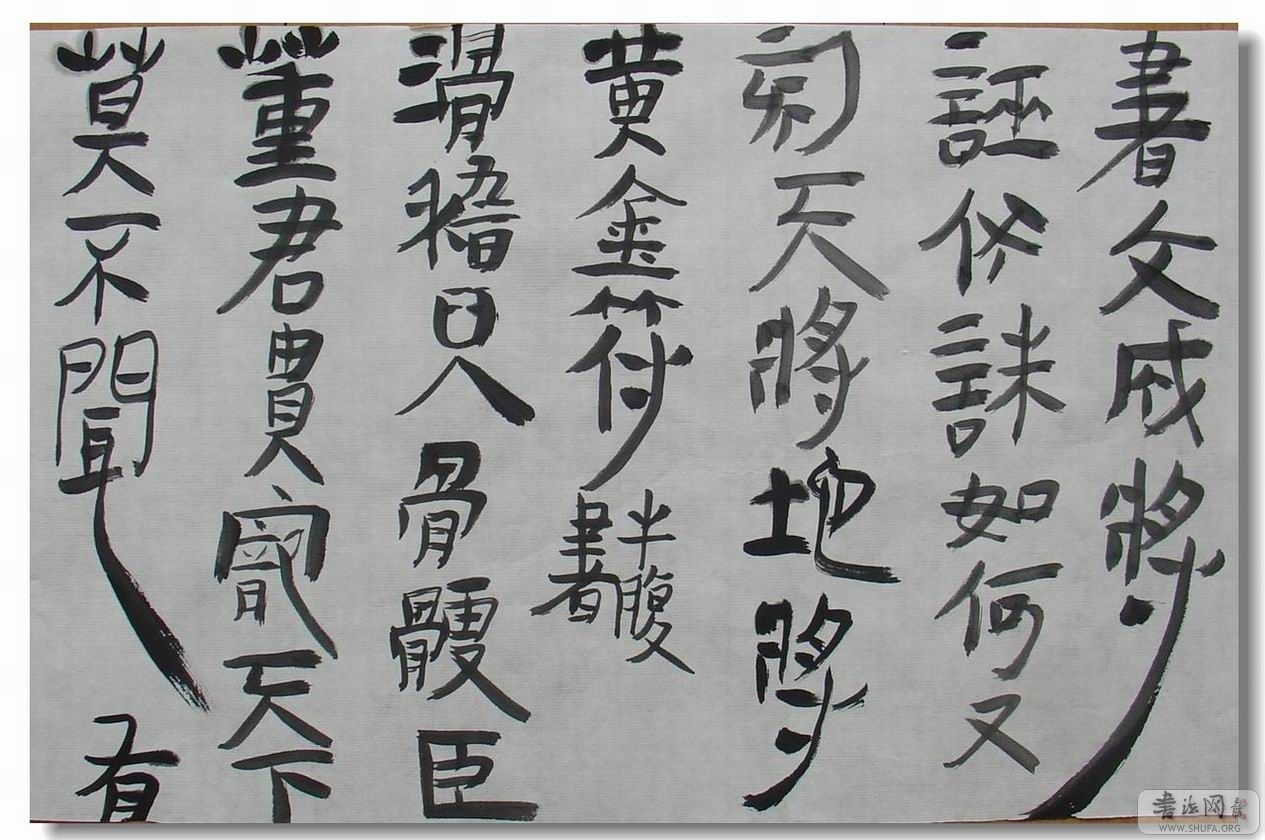 書文戚將
誣如何又
天將地將
黄金符半腹書者
滑稽日人骨骾臣
董君貴寵天下
莫不聞有
書法网
WWW.SHUFA.ORG